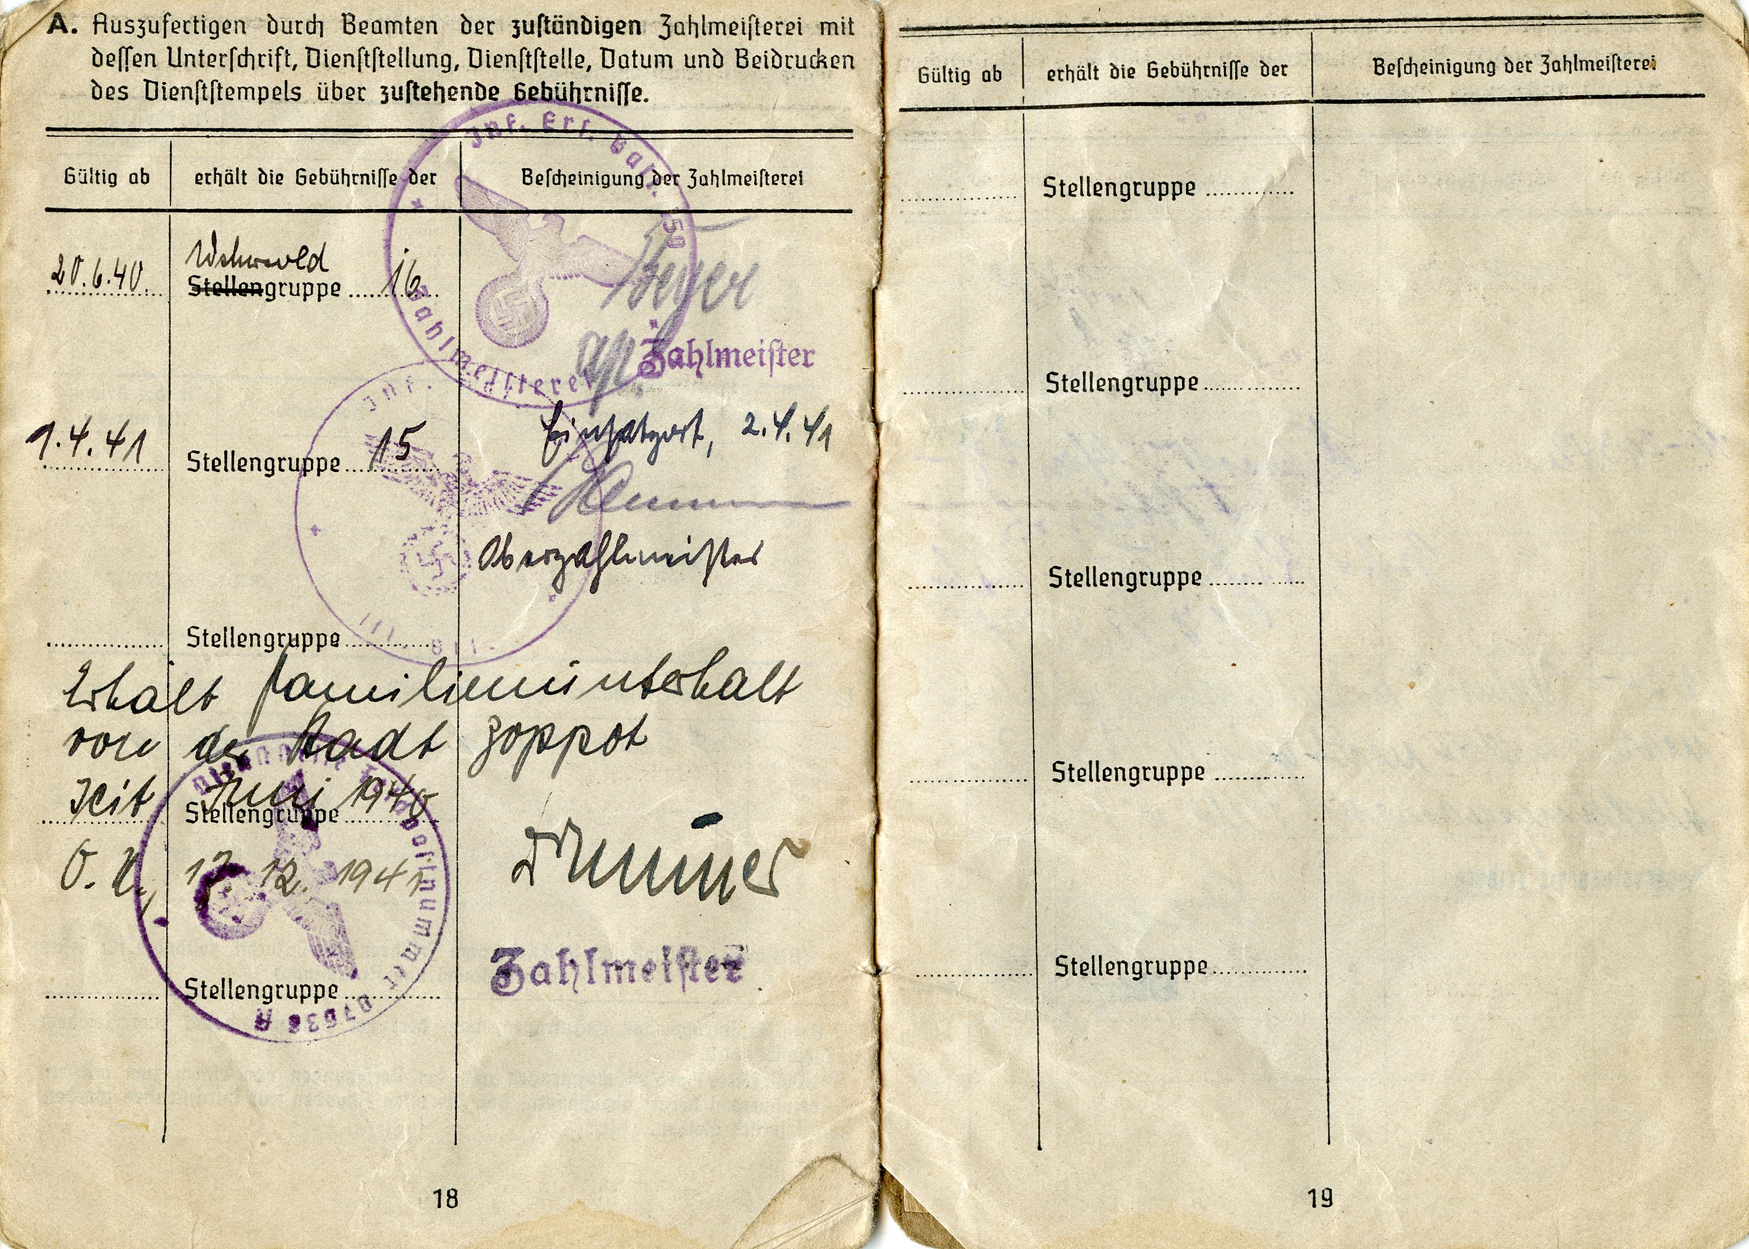 A. Auszufertigen durch Beamten der zuständigen Zahlmeisterei mit
dessen Unterschrift, Dienststellung, Dienststelle, Datum und Beidrucken
des Dienststempels über zustehende Gebührnisse.
Gültig ab erhält die Gebührnisse der Bescheinigung der Zahlmeisterei
Inf. Ers. Batl.
Zahlmeisterei
Wehrsold
20.6.40. Stellengruppe 16
Zahlmeister
Inf.
1.4.41 Stellengruppe 15 Einsatzort, 2.4.41
Oberzahlmeister
Stellengruppe
Erhält Familienunterhalt
von der Stadt Zoppot
seit Juni 1940
Stellengruppe
O.U., 17.12.1941
Dienststelle Feldpostnummer 07636 A
Zahlmeister
Stellengruppe
18
Gültig ab erhält die Gebührnisse der Bescheinigung der Zahlmeisterei
Stellengruppe
Stellengruppe
Stellengruppe
Stellengruppe
Stellengruppe
19